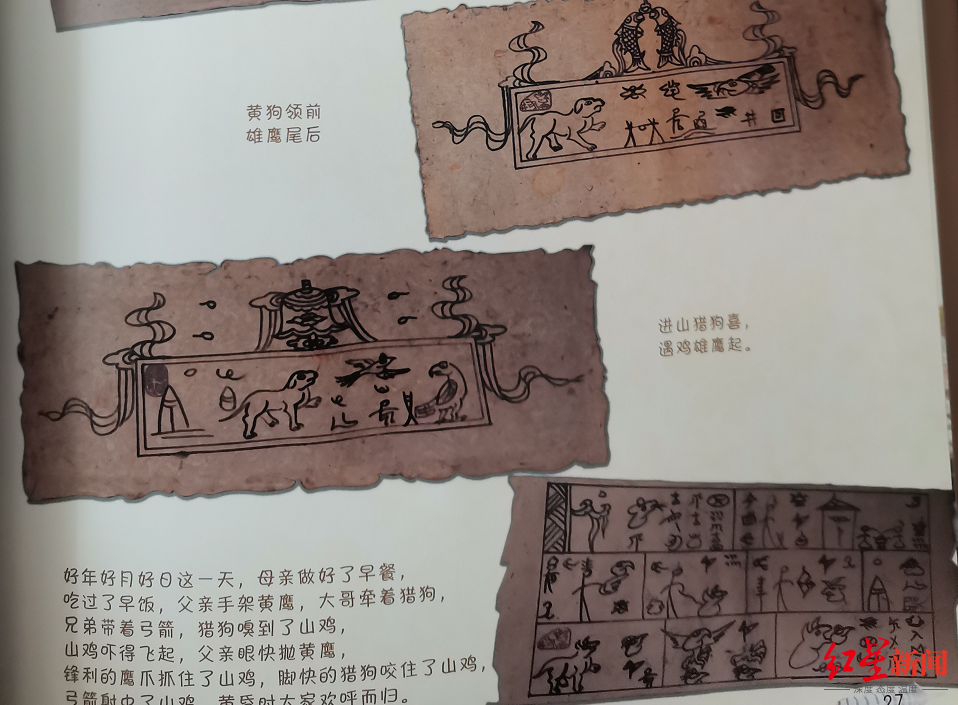 黄狗领前
雄鹰尾后
进山猎狗喜，
遇鸡雄鹰起。
好年好月好日这一天，母亲做好了早餐，
吃过了早饭，父亲手架黄鹰，大哥牵着猎狗，
兄弟带着弓箭，猎狗嗅到了山鸡，
山鸡吓得飞起，父亲眼快抛黄鹰，
锋利的鹰爪抓住了山鸡，脚快的猎狗咬住了山鸡，
弓箭射中了山鸡，黄昏时大家欢呼而归。
红星新闻
深度 态度 温度
27